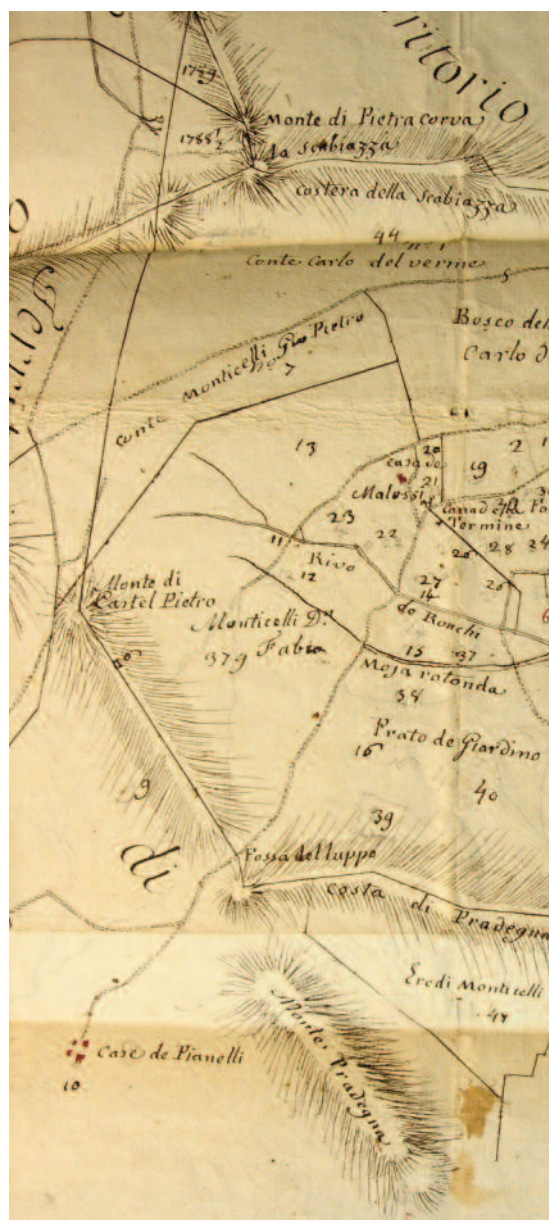 ritorio
Monte di Pietra corva
1788 1/2
la Scabiazza
Costera della Scabiazza
44 n.º 1
Conte Carlo del verme
5
Bosco del
Carlo d
Conte Monticelli Gio Pietro
7
13
20
2
1
Case de
19
21
Malossi
23
22
Canadella
Termine
28
24
11
Rivo
12
27
26
14
de Ronchi
Monte di
Castel Pietro
Monticelli D.n
379 Fabio
15
37
Moja rotonda
38
Prato de Giardino
16
40
9
39
di
Fossa del luppo
Costa di Pradegna
Eredi Monticelli
Monte Pradegna
Case de Pianelli
10